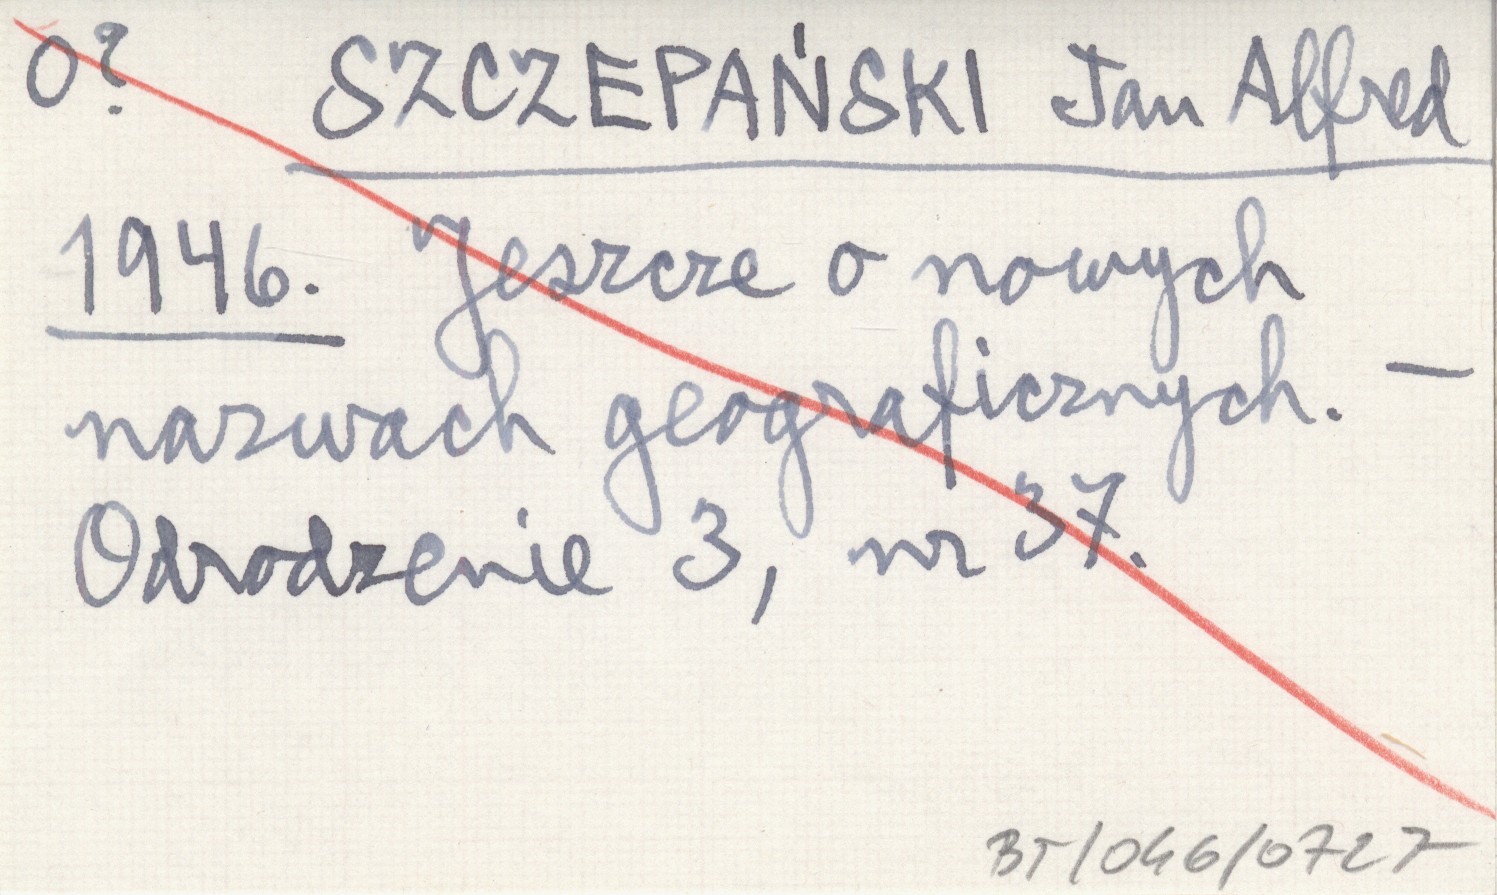 o? SZCZEPAŃSKI Jan Alfred
1946. Jeszcze o nowych
nazwach geograficznych. —
Odrodzenie 3, nr 37.
BT/046/0727